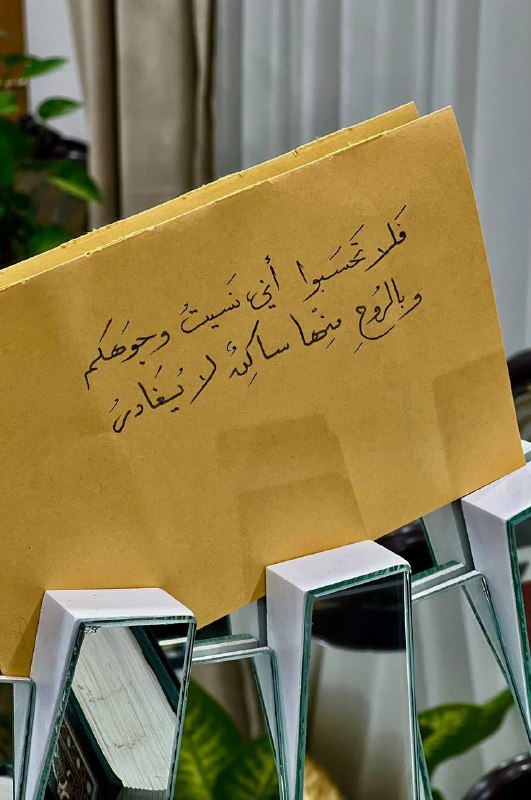 فَلا تَحسَبوا أَني نَسَيتُ وجوَهَكم
وبالرُوحِ مِنْها ساكِنٌ لا يُغَادرُ